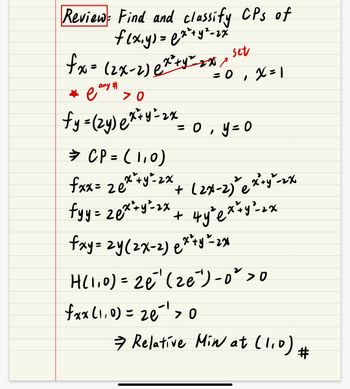 Review: Find and classify CPs of
f(x,y) = e^{x²+y²-2x}
fx = (2x-2) e^{x²+y²-2x} set = 0 , x=1
* e^{any #} > 0
fy = (2y) e^{x²+y²-2x} = 0 , y=0
⇒ CP = (1,0)
fxx = 2e^{x²+y²-2x} + (2x-2)² e^{x²+y²-2x}
fyy = 2e^{x²+y²-2x} + 4y² e^{x²+y²-2x}
fxy = 2y(2x-2) e^{x²+y²-2x}
H(1,0) = 2e⁻¹(2e⁻¹)-0² > 0
fxx(1,0) = 2e⁻¹ > 0
⇒ Relative Min at (1,0) #